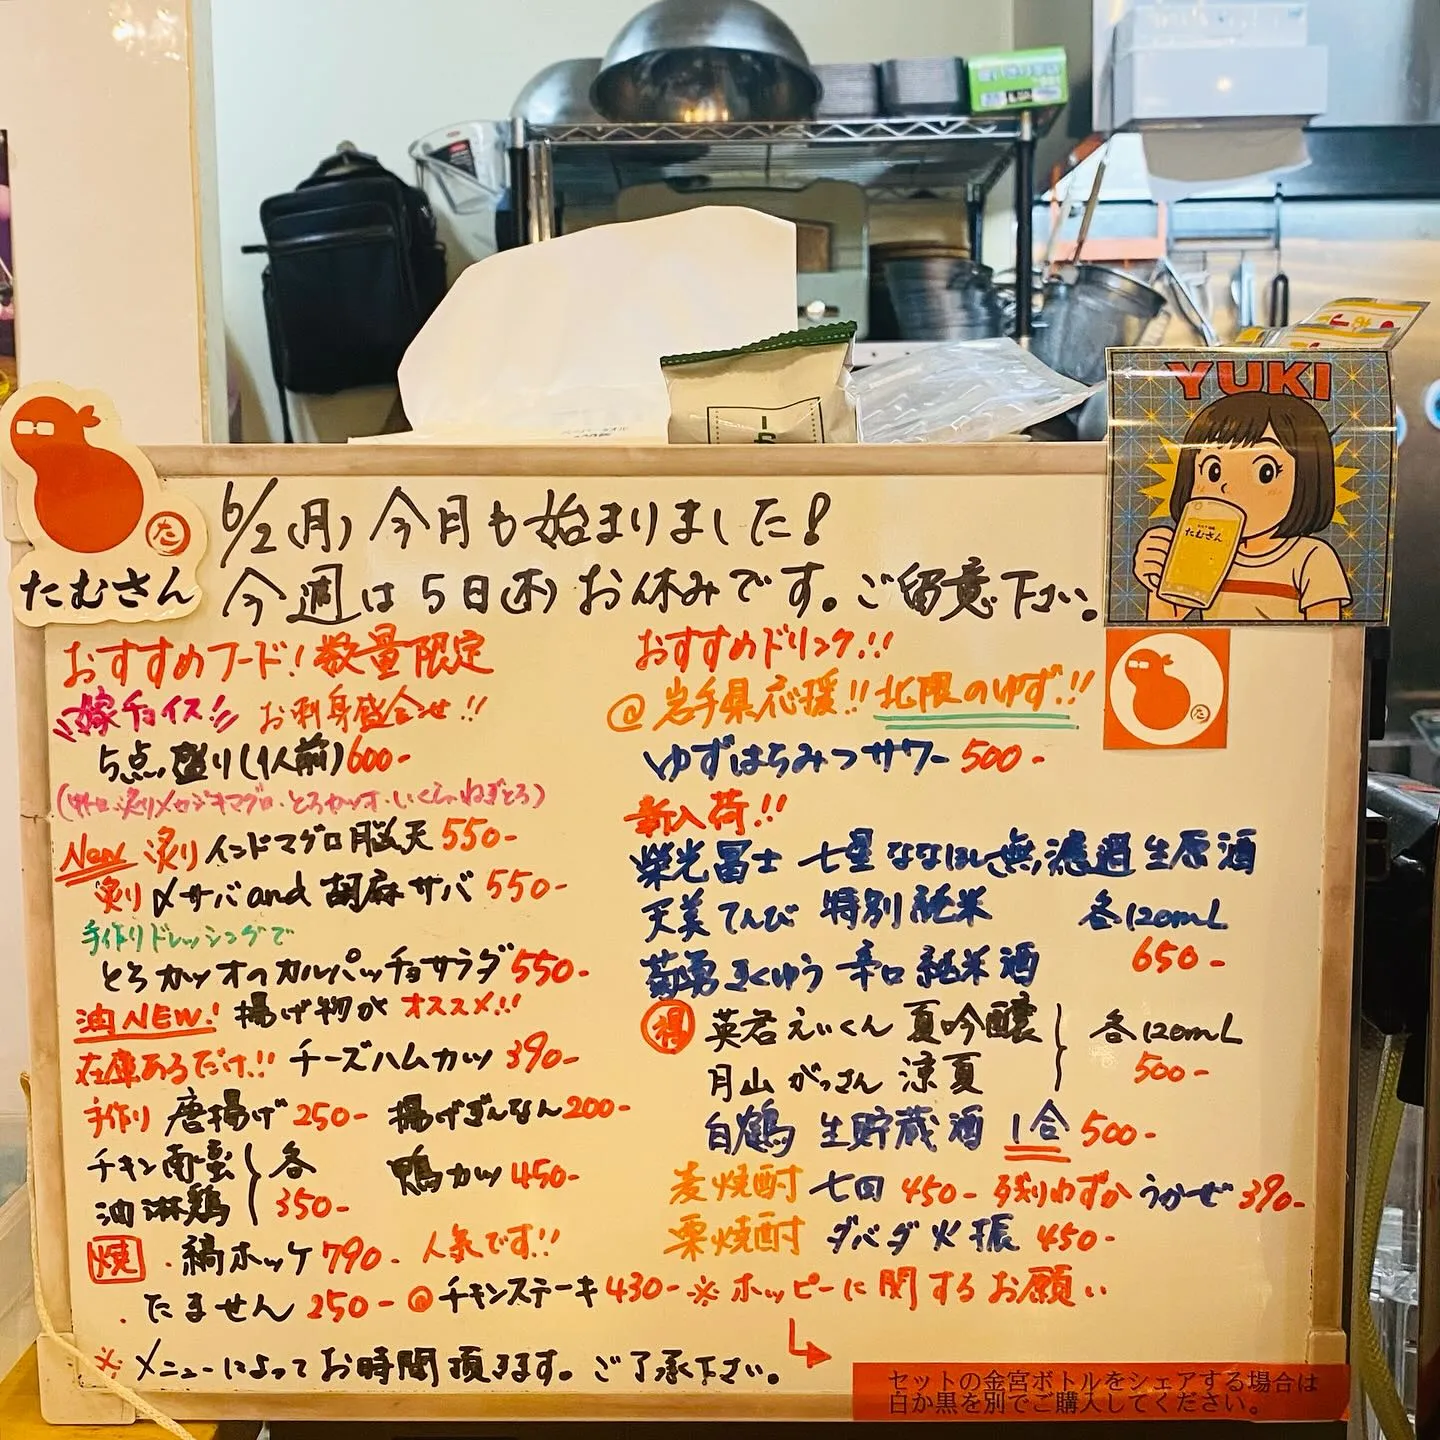 YUKI
たむさん
た
たむさん
6/2(月) 今月も始まりました!
今週は5日(木)お休みです。ご留意下さい。
おすすめフード! 数量限定
嫁チョイス!! お刺身盛合せ!!
5点盛り(1人前)600-
炙りメカジキマグロ・とろカツオ・いくら・ねぎとろ)
New 炙りインドマグロ脳天 550-
炙り〆サバand胡麻サバ 550-
手作りドレッシングで
とろカツオのカルパッチョサラダ 550-
油NEW! 揚げ物がオススメ!!
在庫あるだけ!! チーズハムカツ 390-
手作り 唐揚げ 250- 揚げぎんなん 200-
チキン南蛮
油淋鶏
各
350-
鴨カツ 450-
焼 ・縞ホッケ 790- 人気です!!
・たません 250- @チキンステーキ 430-
※メニューによってお時間頂きます。ご了承下さい。
おすすめドリンク!!
@岩手県応援!! 北限のゆず!!
ゆずはちみつサワー 500-
新入荷!!
栄光冨士 七星 ななほし 無濾過生原酒
天美 てんび 特別純米
菊勇 きくゆう 辛口純米酒
各120mL
650-
得 英君 えいくん 夏吟醸
月山 がっさん 涼夏
各120mL
500-
白鶴 生貯蔵酒 1合 500-
麦焼酎 七回 450- 残りわずか うかぜ 390-
栗焼酎 ダバダ火振 450-
※ホッピーに関するお願い
セットの金宮ボトルをシェアする場合は
白か黒を別でご購入してください。